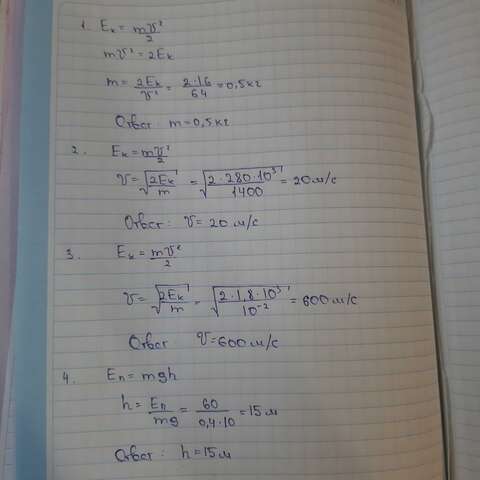 1. Eₖ = mv²/2
mv² = 2Eₖ
m = 2Eₖ/v² = 2·16/64 = 0,5 кг
Ответ m = 0,5 кг
2. Eₖ = mv²/2
v = √(2Eₖ/m) = √(2·280·10³/1400) = 20 м/с
Ответ: v = 20 м/с
3. Eₖ = mv²/2
v = √(2Eₖ/m) = √(2·1,8·10³/10⁻²) = 600 м/с
Ответ: v = 600 м/с
4. Eп = mgh
h = Eп/mg = 60/0,4·10 = 15 м
Ответ: h = 15 м